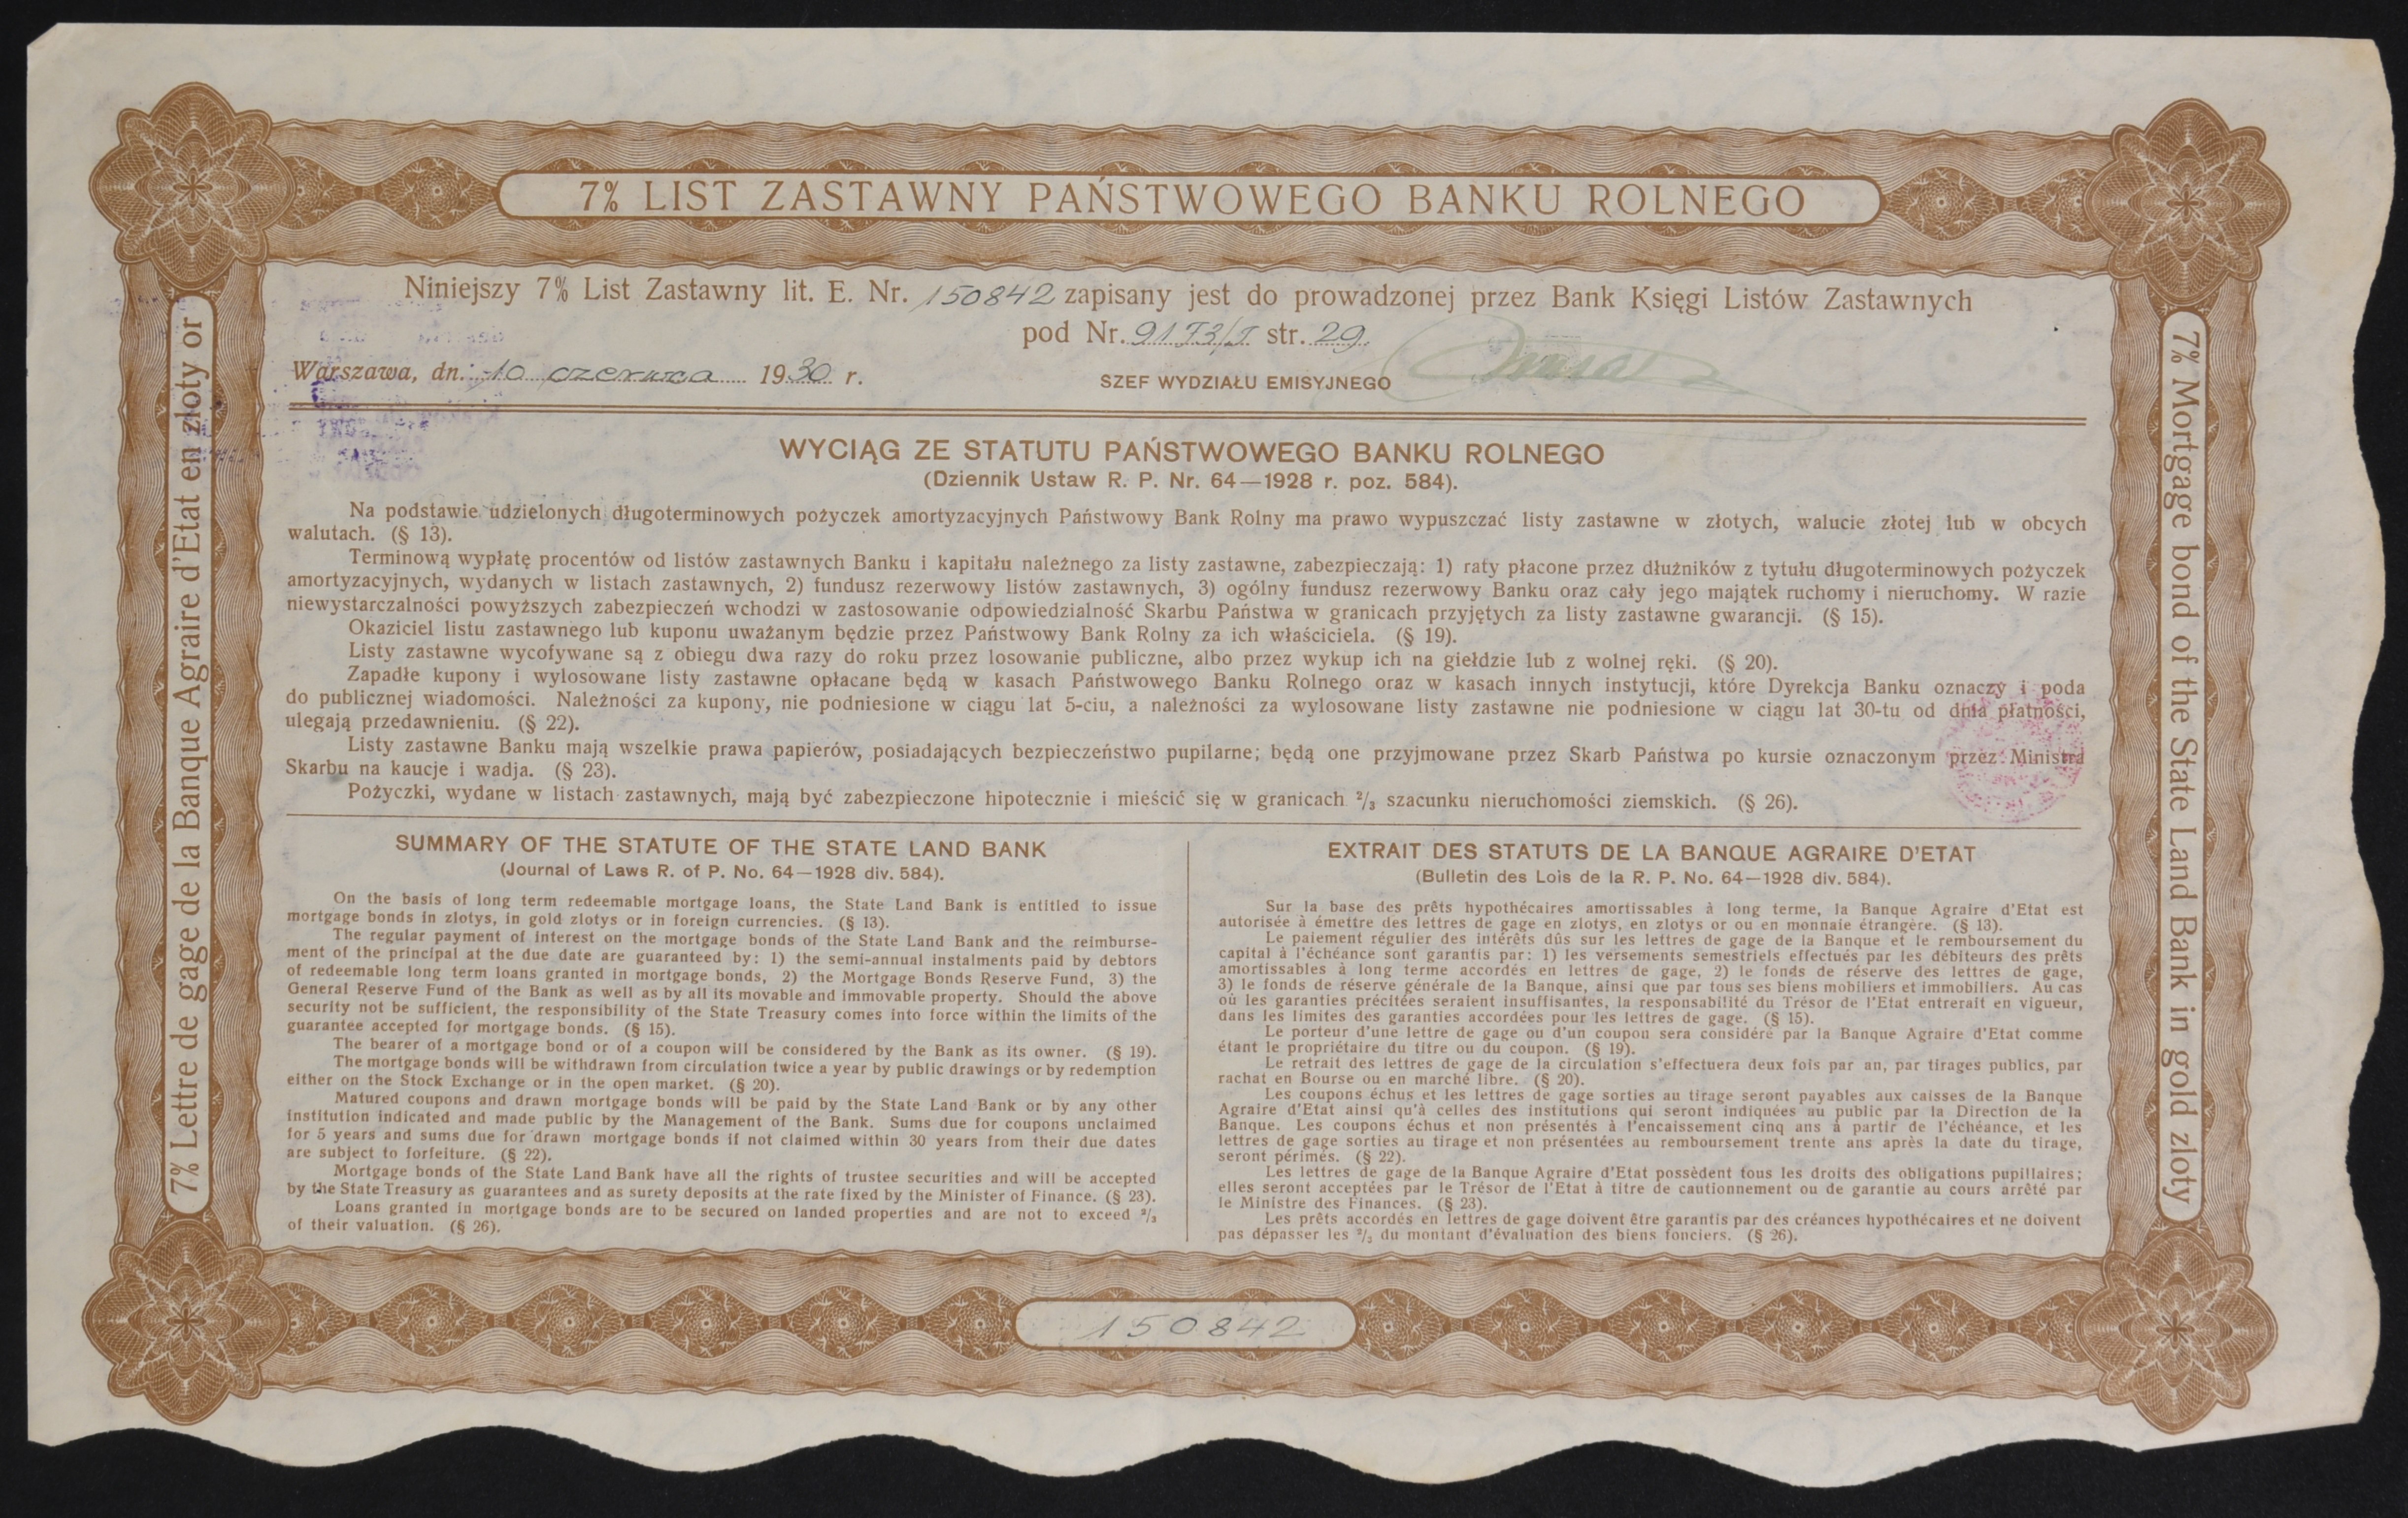 7% LIST ZASTAWNY PAŃSTWOWEGO BANKU ROLNEGO
Niniejszy 7% List Zastawny lit. E. Nr. 150842 zapisany jest do prowadzonej przez Bank Księgi Listów Zastawnych
pod Nr. str. 29.
Warszawa, dn. 10 czerwca 1930 r.
SZEF WYDZIAŁU EMISYJNEGO
WYCIĄG ZE STATUTU PAŃSTWOWEGO BANKU ROLNEGO
(Dziennik Ustaw R. P. Nr. 64—1928 r. poz. 584).
Na podstawie udzielonych długoterminowych pożyczek amortyzacyjnych Państwowy Bank Rolny ma prawo wypuszczać listy zastawne w złotych, walucie złotej lub w obcych
walutach. (§ 13).
Terminową wypłatę procentów od listów zastawnych Banku i kapitału należnego za listy zastawne, zabezpieczają: 1) raty płacone przez dłużników z tytułu długoterminowych pożyczek
amortyzacyjnych, wydanych w listach zastawnych, 2) fundusz rezerwowy listów zastawnych, 3) ogólny fundusz rezerwowy Banku oraz cały jego majątek ruchomy i nieruchomy. W razie
niewystarczalności powyższych zabezpieczeń wchodzi w zastosowanie odpowiedzialność Skarbu Państwa w granicach przyjętych za listy zastawne gwarancji. (§ 15).
Okaziciel listu zastawnego lub kuponu uważanym będzie przez Państwowy Bank Rolny za ich właściciela. (§ 19).
Listy zastawne wycofywane są z obiegu dwa razy do roku przez losowanie publiczne, albo przez wykup ich na giełdzie lub z wolnej ręki. (§ 20).
Zapadłe kupony i wylosowane listy zastawne opłacane będą w kasach Państwowego Banku Rolnego oraz w kasach innych instytucji, które Dyrekcja Banku oznaczy i poda
do publicznej wiadomości. Należności za kupony, nie podniesione w ciągu lat 5-ciu, a należności za wylosowane listy zastawne nie podniesione w ciągu lat 30-tu od dnia płatności,
ulegają przedawnieniu. (§ 22).
Listy zastawne Banku mają wszelkie prawa papierów, posiadających bezpieczeństwo pupilarne; będą one przyjmowane przez Skarb Państwa po kursie oznaczonym przez Ministra
Skarbu na kaucje i wadja. (§ 23).
Pożyczki, wydane w listach zastawnych, mają być zabezpieczone hipotecznie i mieścić się w granicach ²/₃ szacunku nieruchomości ziemskich. (§ 26).
SUMMARY OF THE STATUTE OF THE STATE LAND BANK
(Journal of Laws R. of P. No. 64—1928 div. 584).
On the basis of long term redeemable mortgage loans, the State Land Bank is entitled to issue
mortgage bonds in zlotys, in gold zlotys or in foreign currencies. (§ 13).
The regular payment of interest on the mortgage bonds of the State Land Bank and the reimburse-
ment of the principal at the due date are guaranteed by: 1) the semi-annual instalments paid by debtors
of redeemable long term loans granted in mortgage bonds, 2) the Mortgage Bonds Reserve Fund, 3) the
General Reserve Fund of the Bank as well as by all its movable and immovable property. Should the above
security not be sufficient, the responsibility of the State Treasury comes into force within the limits of the
guarantee accepted for mortgage bonds. (§ 15).
The bearer of a mortgage bond or of a coupon will be considered by the Bank as its owner. (§ 19).
The mortgage bonds will be withdrawn from circulation twice a year by public drawings or by redemption
either on the Stock Exchange or in the open market. (§ 20).
Matured coupons and drawn mortgage bonds will be paid by the State Land Bank or by any other
institution indicated and made public by the Management of the Bank. Sums due for coupons unclaimed
for 5 years and sums due for drawn mortgage bonds if not claimed within 30 years from their due dates
are subject to forfeiture. (§ 22).
Mortgage bonds of the State Land Bank have all the rights of trustee securities and will be accepted
by the State Treasury as guarantees and as surety deposits at the rate fixed by the Minister of Finance. (§ 23).
Loans granted in mortgage bonds are to be secured on landed properties and are not to exceed ²/₃
of their valuation. (§ 26).
EXTRAIT DES STATUTS DE LA BANQUE AGRAIRE D'ETAT
(Bulletin des Lois de la R. P. No. 64—1928 div. 584).
Sur la base des prêts hypothécaires amortissables à long terme, la Banque Agraire d'Etat est
autorisée à émettre des lettres de gage en zlotys, en zlotys or ou en monnaie étrangère. (§ 13).
Le paiement régulier des intérêts dûs sur les lettres de gage de la Banque et le remboursement du
capital à l'échéance sont garantis par: 1) les versements semestriels effectués par les débiteurs des prêts
amortissables à long terme accordés en lettres de gage, 2) le fonds de réserve des lettres de gage,
3) le fonds de réserve générale de la Banque, ainsi que par tous ses biens mobiliers et immobiliers. Au cas
où les garanties précitées seraient insuffisantes, la responsabilité du Trésor de l'Etat entrerait en vigueur,
dans les limites des garanties accordées pour les lettres de gage. (§ 15).
Le porteur d'une lettre de gage ou d'un coupon sera considéré par la Banque Agraire d'Etat comme
étant le propriétaire du titre ou du coupon. (§ 19).
Le retrait des lettres de gage de la circulation s'effectuera deux fois par an, par tirages publics, par
rachat en Bourse ou en marché libre. (§ 20).
Les coupons échus et les lettres de gage sorties au tirage seront payables aux caisses de la Banque
Agraire d'Etat ainsi qu'à celles des institutions qui seront indiquées au public par la Direction de la
Banque. Les coupons échus et non présentés à l'encaissement cinq ans à partir de l'échéance, et les
lettres de gage sorties au tirage et non présentées au remboursement trente ans après la date du tirage,
seront périmés. (§ 22).
Les lettres de gage de la Banque Agraire d'Etat possèdent tous les droits des obligations pupillaires;
elles seront acceptées par le Trésor de l'Etat à titre de cautionnement ou de garantie au cours arrêté par
le Ministre des Finances. (§ 23).
Les prêts accordés en lettres de gage doivent être garantis par des créances hypothécaires et ne doivent
pas dépasser les ²/₃ du montant d'évaluation des biens fonciers. (§ 26).
7% Lettre de gage de la Banque Agraire d'Etat en zloty or
7% Mortgage bond of the State Land Bank in gold zloty
150842